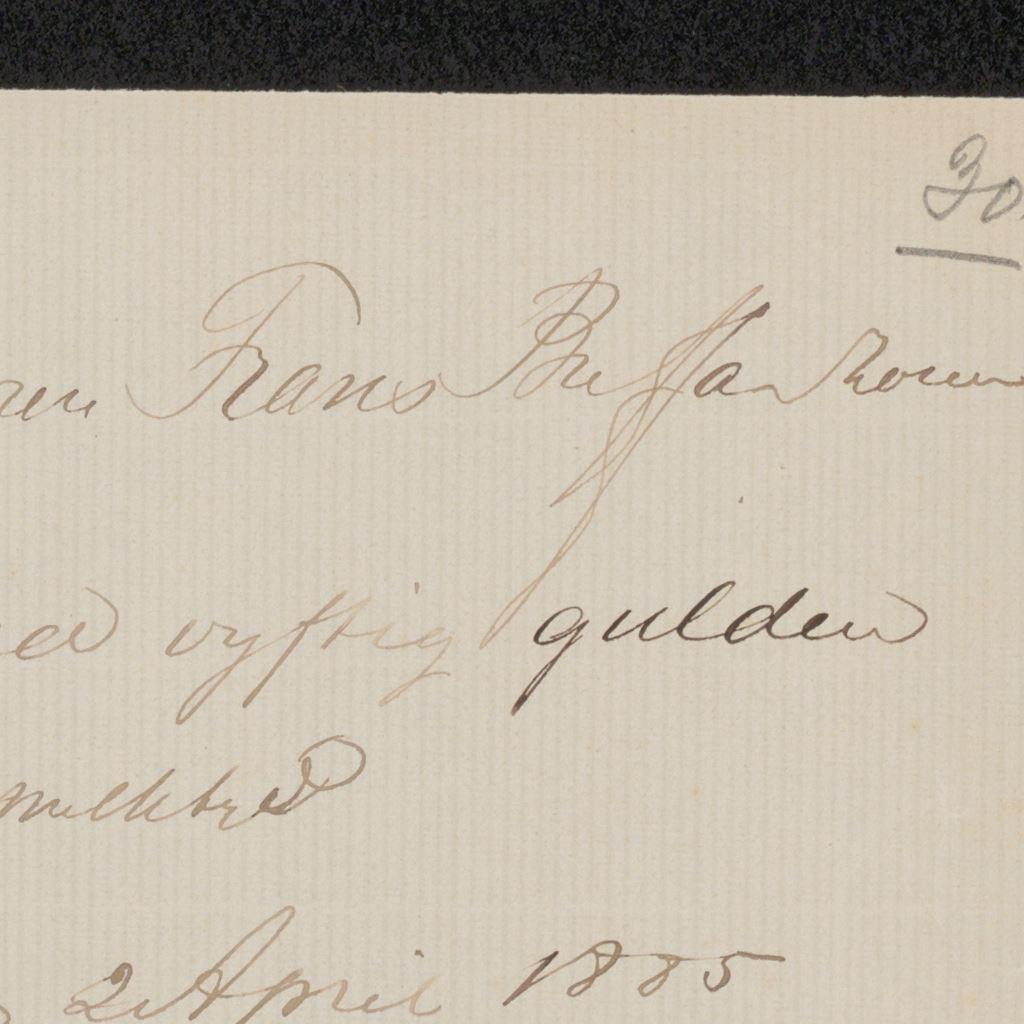 30
Frans Buffa Zonen
vyftig gulden
melkbye
2 April 1885